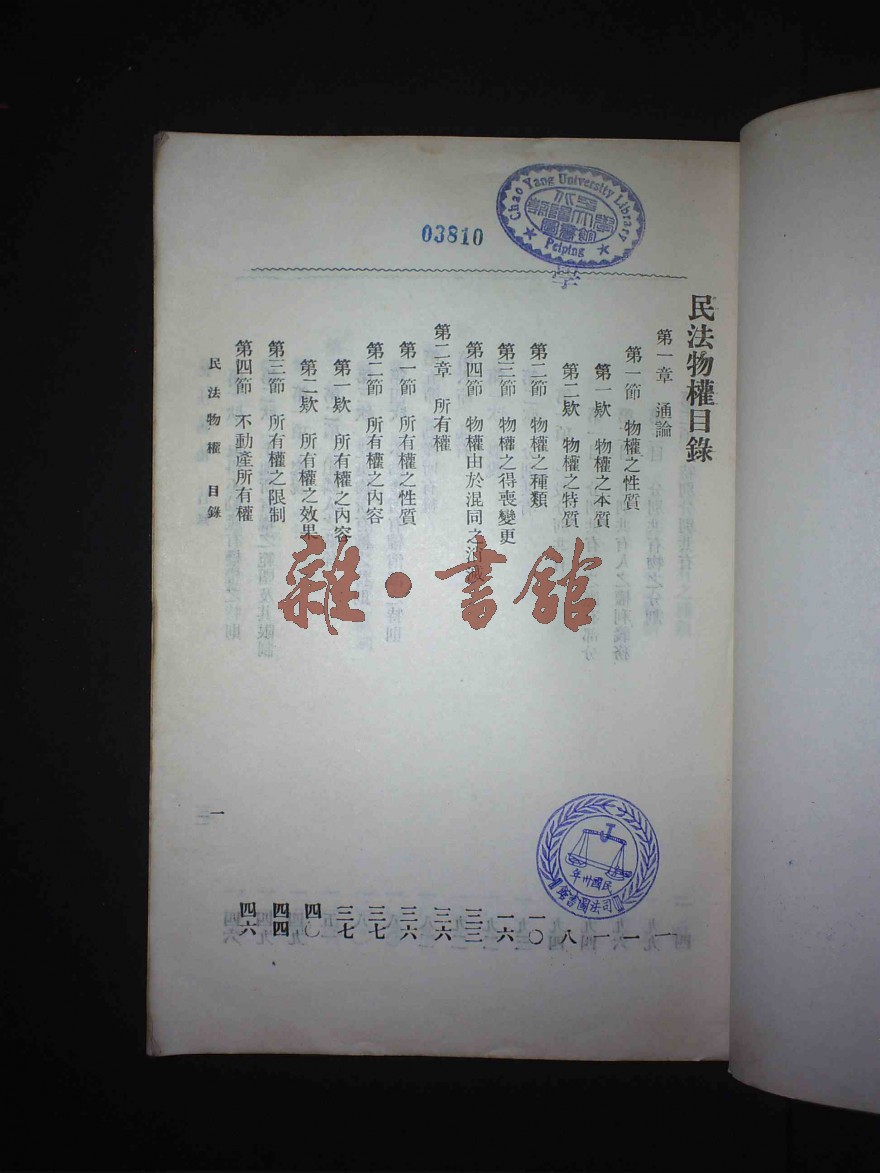 03810
Chao Yang University Library
Peiping
民法物權目錄
第一章 通論 一
第一節 物權之性質 一
第一欵 物權之本質 一
第二欵 物權之特質 八
第二節 物權之種類 一〇
第三節 物權之得喪變更 一六
第四節 物權由於混同之消滅 三三
第二章 所有權 三六
第一節 所有權之性質 三六
第二節 所有權之內容 三七
第一欵 所有權之內容 三七
第二欵 所有權之效果 四〇
第三節 所有權之限制 四四
第四節 不動產所有權 四六
民法物權 目錄 一
雜·書館
民國卅年
司法圖書館